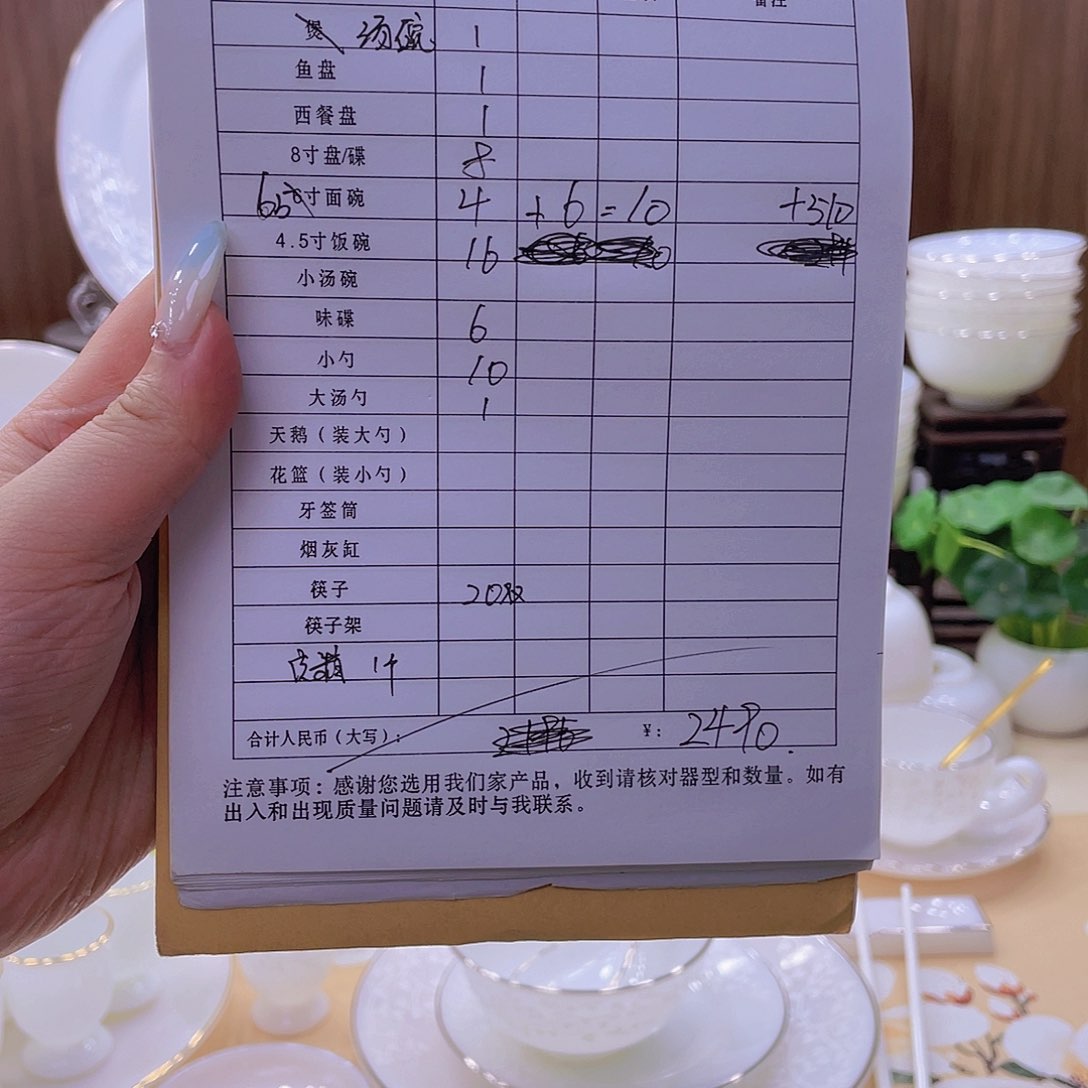 汤碗 1
鱼盘 1
西餐盘 1
8寸盘/碟 8
6.5寸面碗 4 +6 =10 +510
4.5寸饭碗 16
小汤碗
味碟 6
小勺 10
大汤勺 1
天鹅(装大勺)
花篮(装小勺)
牙签筒
烟灰缸
筷子 20双
筷子架
1个
合计人民币(大写): ¥: 2480.
注意事项:感谢您选用我们家产品,收到请核对器型和数量。如有
出入和出现质量问题请及时与我联系。